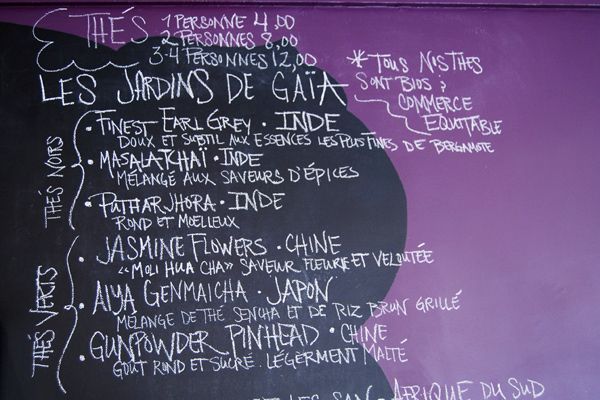 THÉS 1 PERSONNE 4,00
2 PERSONNES 8,00
3-4 PERSONNES 12,00
* TOUS NOS THES
SONT BIOS &
COMMERCE
EQUITABLE
LES JARDINS DE GAÏA
THÉS NOIRS
• FINEST EARL GREY • INDE
DOUX ET SUBTIL AUX ESSENCES LES PLUS FINES DE BERGAMOTE
• MASALATCHAÏ • INDE
MÉLANGÉ AUX SAVEURS D'ÉPICES
• PUTHARJHORA • INDE
ROND ET MOELLEUX
THÉS VERTS
• JASMINE FLOWERS • CHINE
"MOLI HUA CHA" SAVEUR FLEURIE ET VELOUTÉE
• AIYA GENMAICHA • JAPON
MÉLANGE DE THÉ SENCHA ET DE RIZ BRUN GRILLÉ
• GUNPOWDER PINHEAD • CHINE
GOUT ROND ET SUCRÉ. LÉGERMENT MALTÉ
AFRIQUE DU SUD